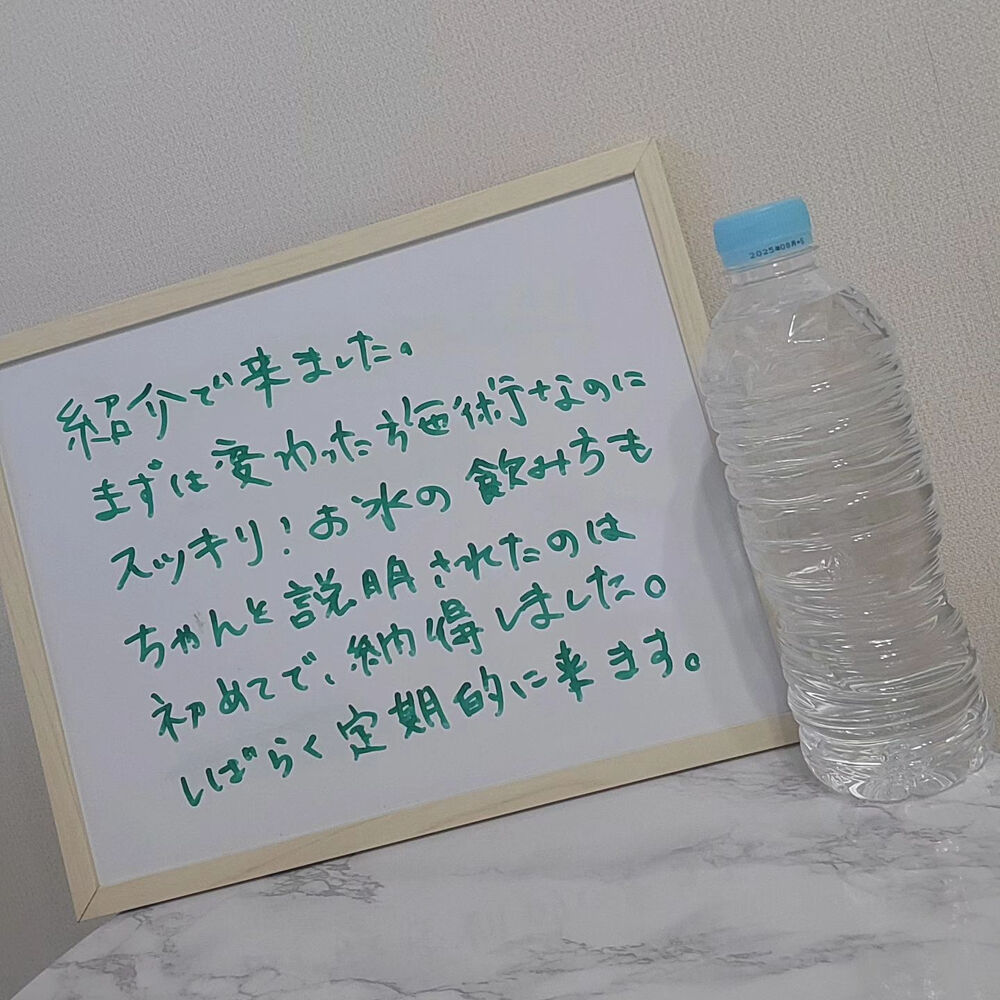 紹介で来ました。
まずは変わった施術なのに
スッキリ!お水の飲みちも
ちゃんと説明されたのは
初めてで、納得しました。
しばらく定期的に来ます。